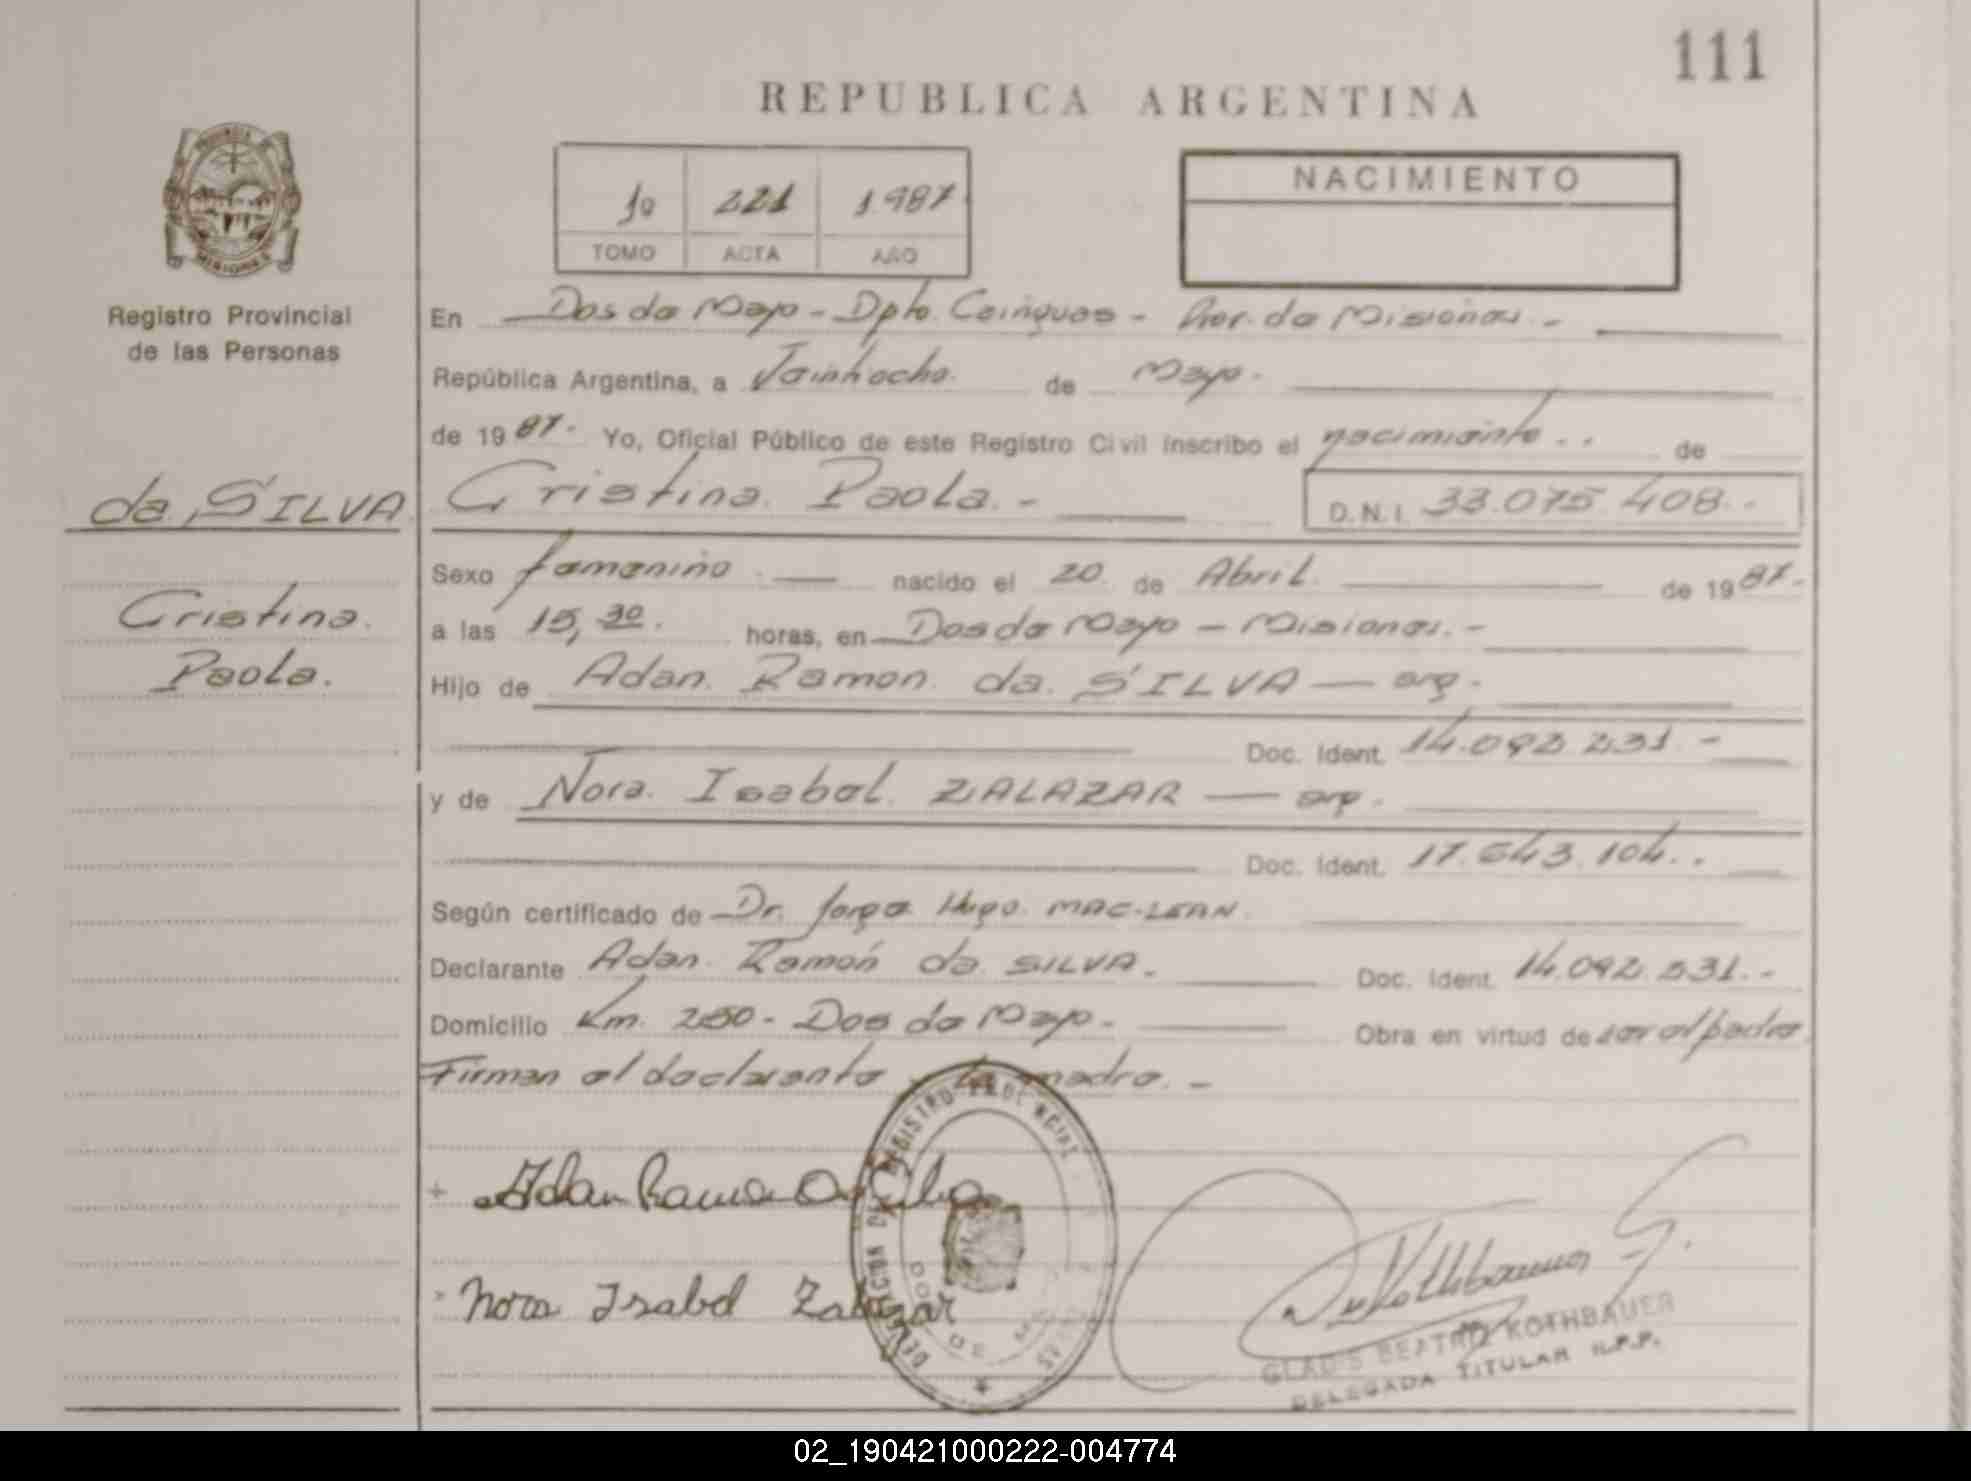 111
REPUBLICA ARGENTINA
1º 221 1.987
TOMO ACTA AÑO
NACIMIENTO
MISIONES
Registro Provincial
de las Personas
En Dos de Mayo - Dpto. Cainguas - Prov. de Misiones. -
República Argentina, a Veintiocho. de Mayo.
de 19 87. Yo, Oficial Público de este Registro Civil inscribo el nacimiento. . de
da SILVA Cristina Paola. - D.N.I. 33.075.408. -
Sexo femenino nacido el 20 de Abril. de 19 87. -
Cristina.
a las 15,30. horas, en Dos de Mayo - Misiones. -
Paola.
Hijo de Adan Ramon da SILVA — arg.
Doc. Ident. 14.092.231. -
y de Nora Isabel ZALAZAR — arg.
Doc. Ident. 17.643.104. .
Según certificado de Dr. Jorge Hugo MAC-LEAN.
Declarante Adan Ramón da SILVA. Doc. Ident. 14.092.231. -
Domicilio Km. 250 - Dos de Mayo. - Obra en virtud de ser el padre
Firman el declarante y la madre. -
REGISTRO PROVINCIAL
Adan Ramon Da Silva
Nora Isabel Zalazar
GLADIS BEATRIZ KOTHBAUER
DELEGADA TITULAR R.P.P.
02_190421000222-004774